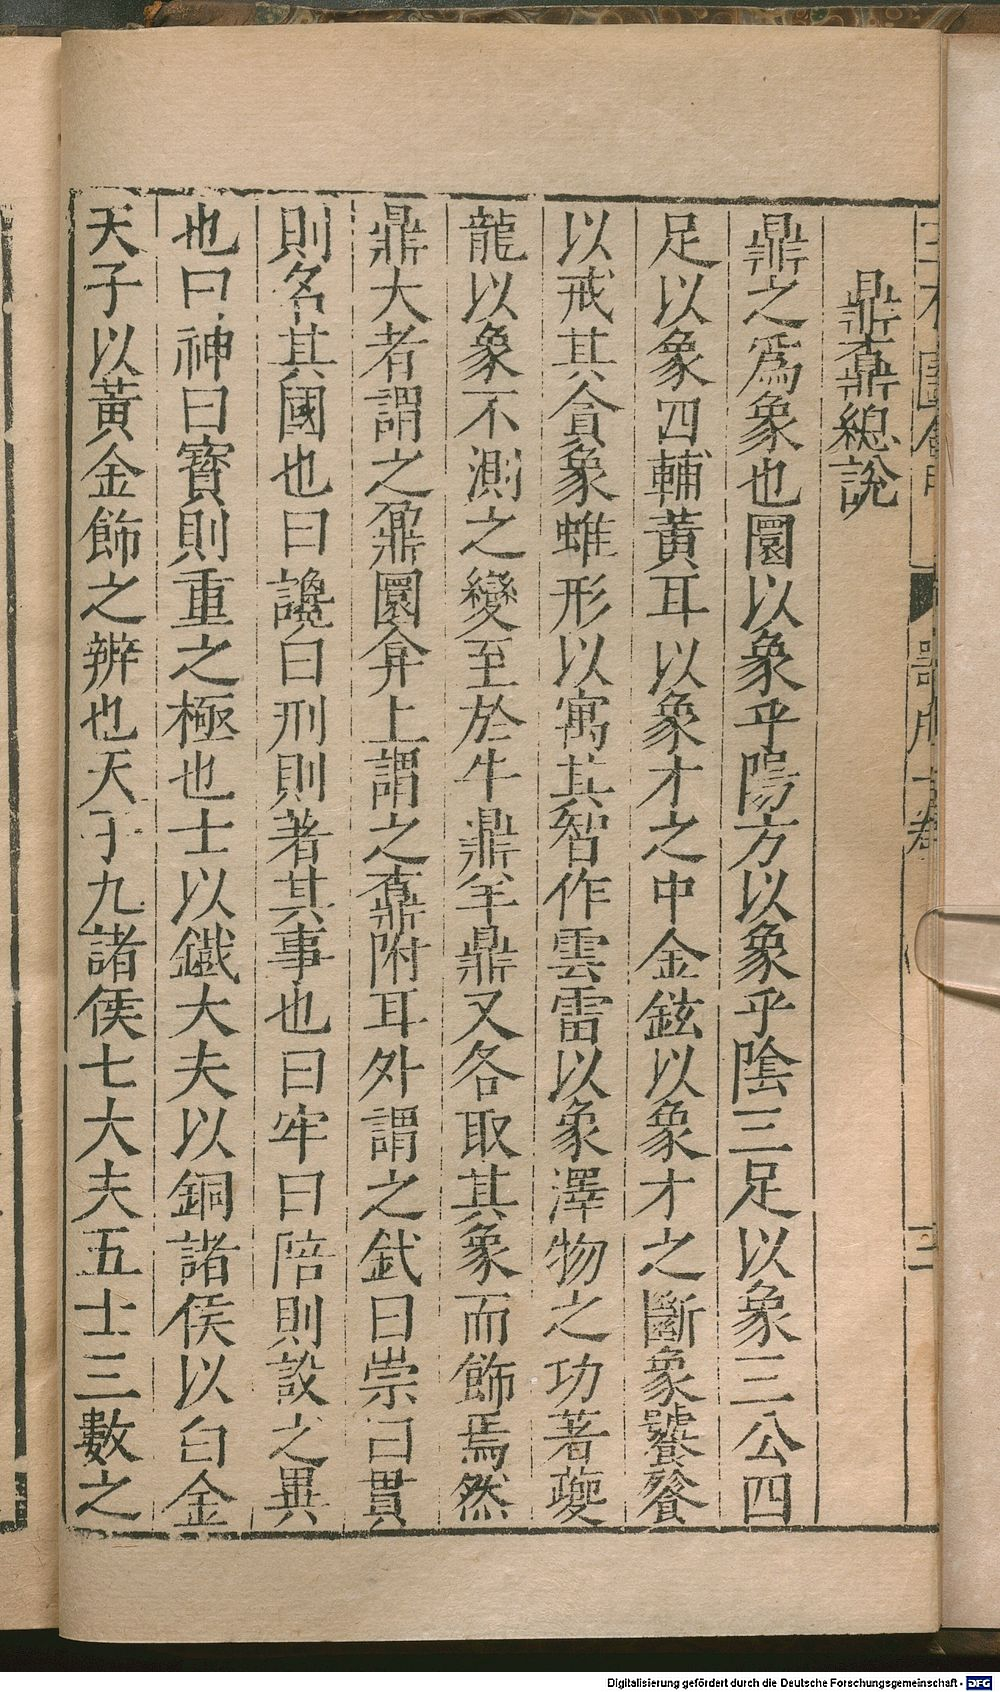 鼎鼒總說
鼎之爲象也圜以象乎陽方以象乎陰三足以象三公四
足以象四輔黃耳以象才之中金鉉以象才之斷象饕餮
以戒其貪象蜼形以寓其智作雲雷以象澤物之功著夔
龍以象不測之變至於牛鼎羊鼎又各取其象而飾焉然
鼎大者謂之鼐圜弇上謂之鼒附耳外謂之釴曰崇曰貫
則名其國也曰讒曰刑則著其事也曰牢曰陪則設之異
也曰神曰寶則重之極也士以鐵大夫以銅諸侯以白金
天子以黃金飾之辨也天子九諸侯七大夫五士三數之
Digitalisierung gefördert durch die Deutsche Forschungsgemeinschaft - DFG